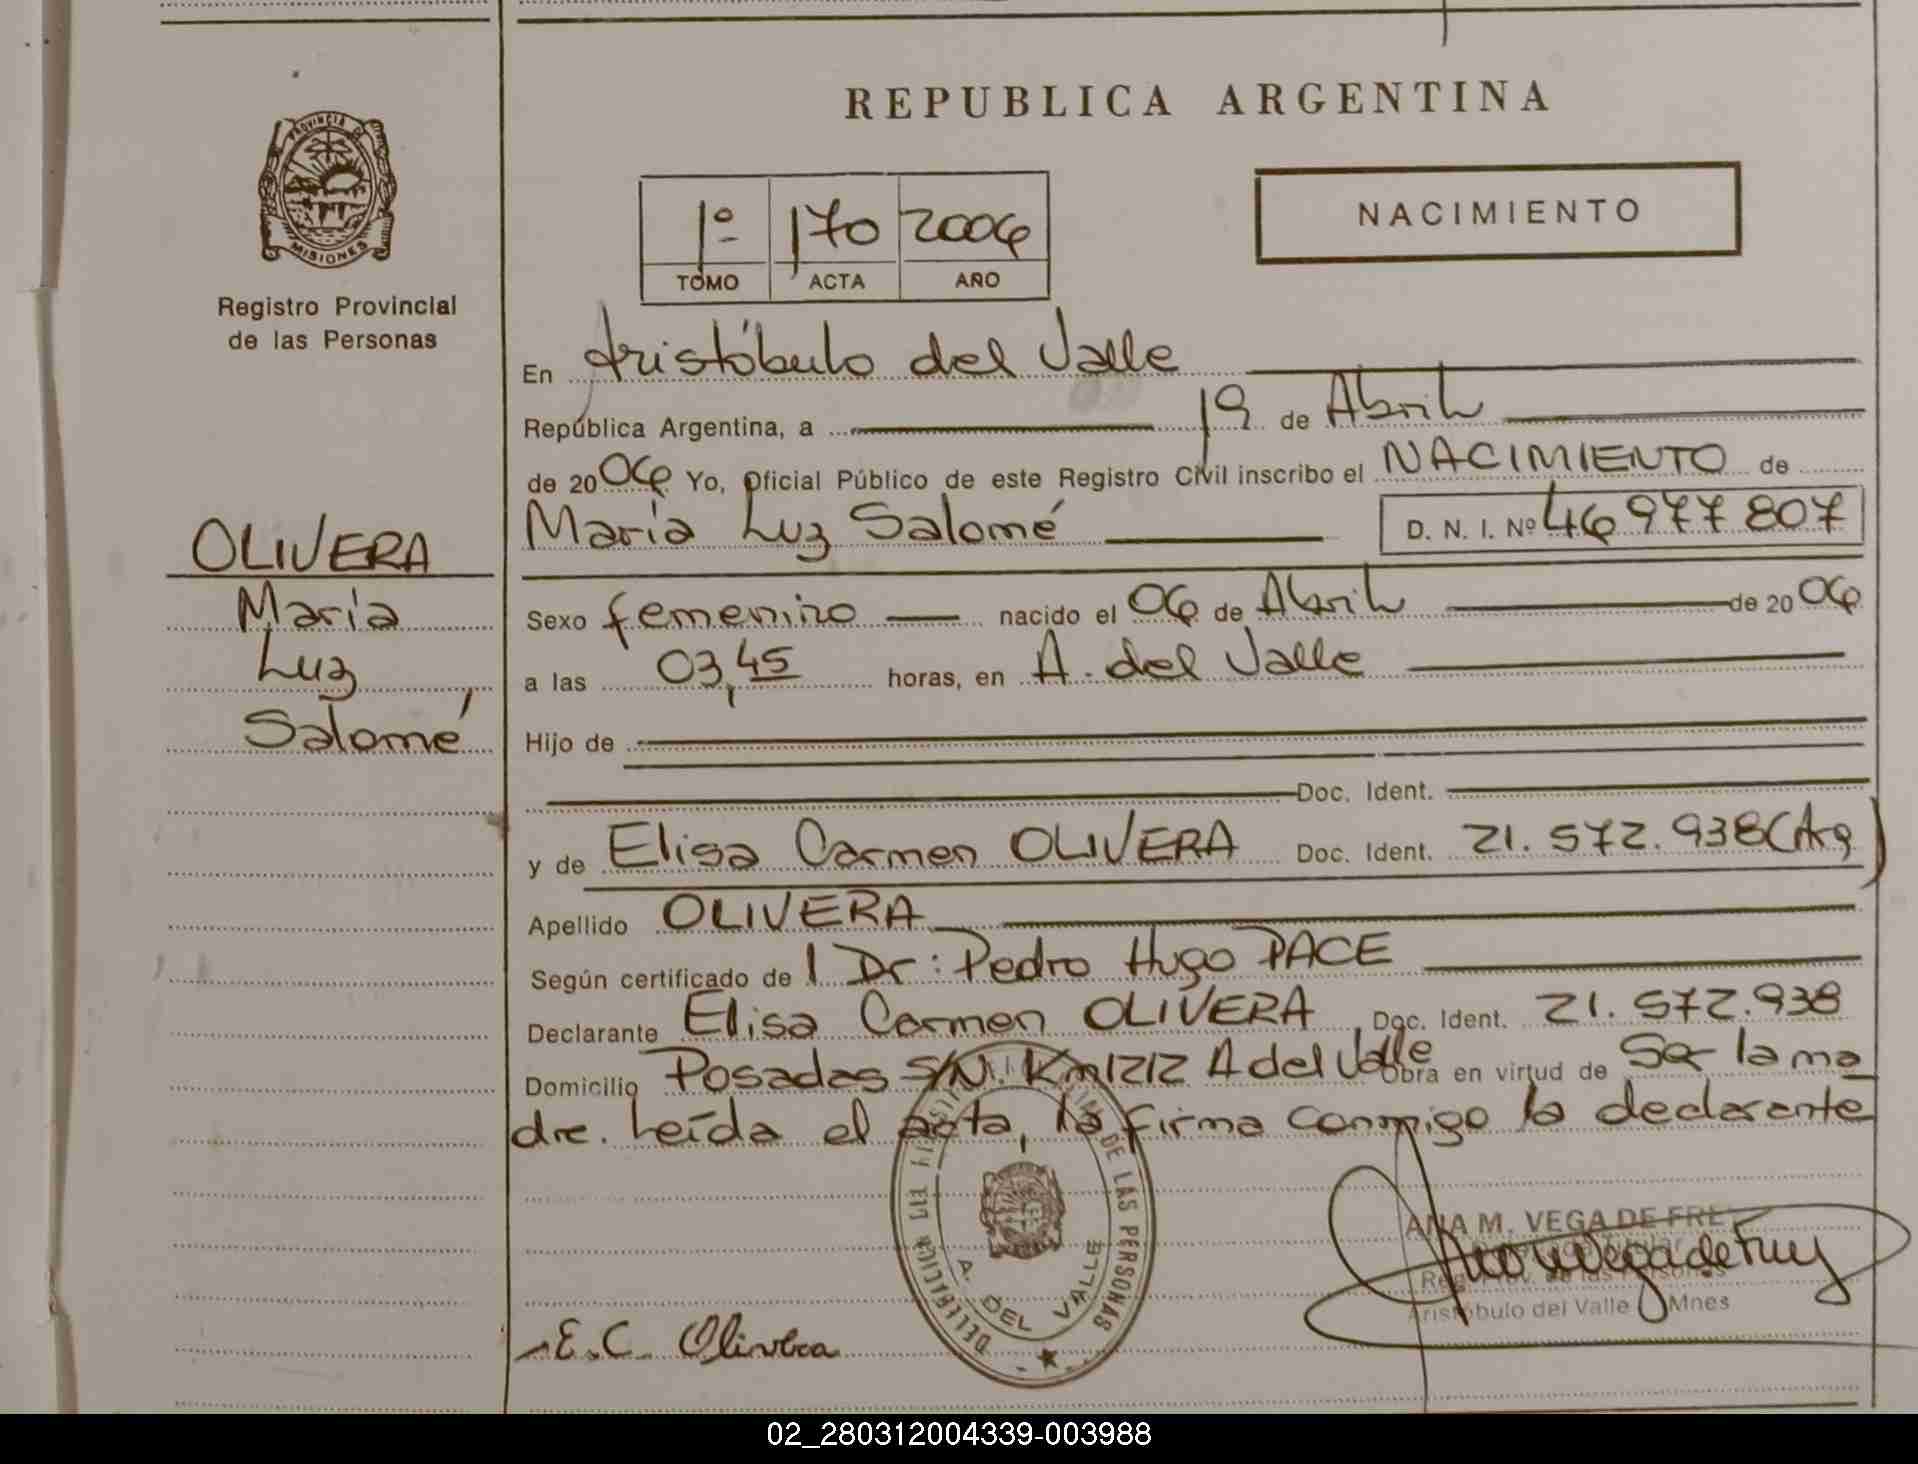 REPUBLICA ARGENTINA
PROVINCIA DE
MISIONES
Registro Provincial
de las Personas
1º 170 2006
TOMO ACTA AÑO
NACIMIENTO
En Aristóbulo del Valle
República Argentina, a 19 de Abril
de 2006 Yo, Oficial Público de este Registro Civil inscribo el NACIMIENTO de
María Luz Salomé D. N. I. Nº 46 977 807
OLIVERA
María
Luz
Salomé
Sexo femenino nacido el 06 de Abril de 2006
a las 03,45 horas, en A. del Valle
Hijo de
Doc. Ident.
y de Elisa Carmen OLIVERA Doc. Ident. 21.572.938 (Arg)
Apellido OLIVERA
Según certificado de l Dr: Pedro Hugo PACE
Declarante Elisa Carmen OLIVERA Doc. Ident. 21.572.938
Domicilio Posadas S/N. Km1212 A del Valle Obra en virtud de Ser la ma
dre. Leída el acta, la firma conmigo la declarante
DE LAS PERSONAS
A. DEL VALLE
ANA M. VEGA DE FRE
Ana Vega de Frey
Reg. Prov. de las Personas
Aristóbulo del Valle Mnes
E.C. Olivera
02_280312004339-003988